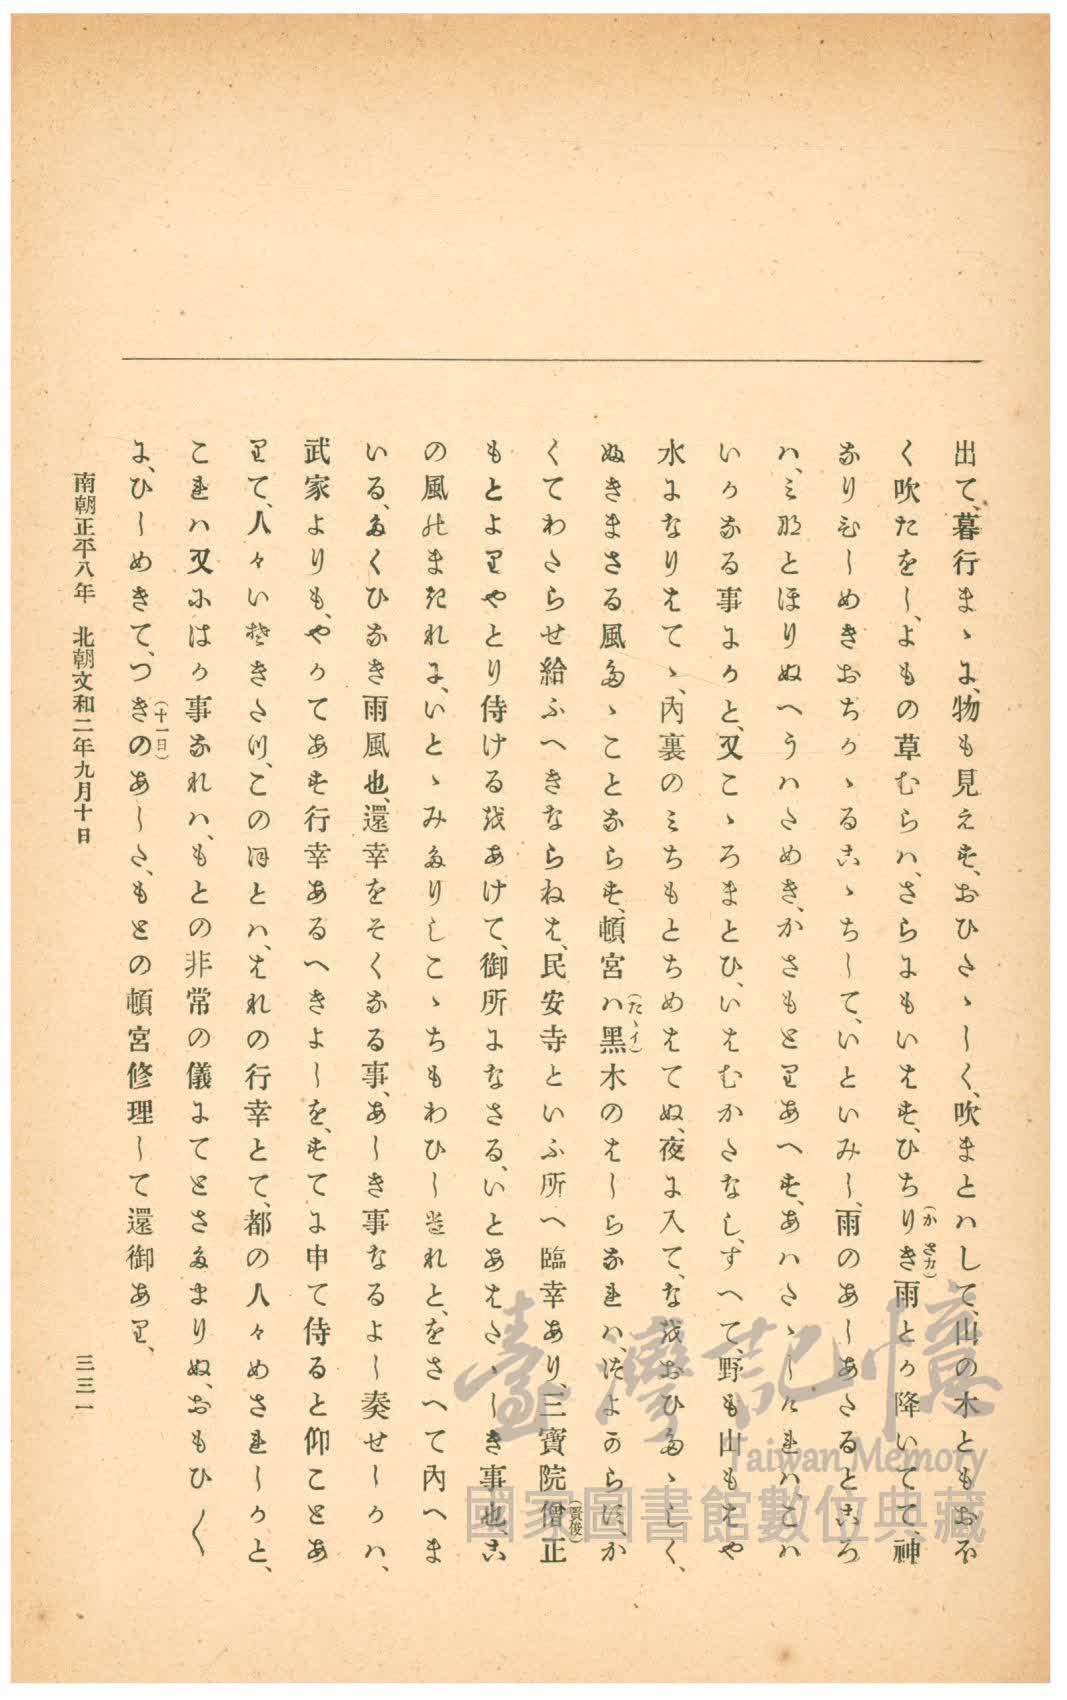 出て、暮行まゝに、物も見えす、おひさゝしく、吹まとハして、山の木ともおほ
く吹たをし、よもの草むらハ、さらにもいはす、ひちりき(かさカ)雨とか降いてて、神
なりひしめきおちかゝるこゝちして、いといみし、雨のあしあたるところ
ハ、ミ那とほりぬへうハためき、かさもとりあへす、あハたゝしけれハ、こハ
いかなる事にかと、又こゝろまとひ、いはむかたなし、すへて、野も山もはや
水になりはてゝ、内裏のミちもとちめはてぬ、夜に入て、なをおひたゝしく、
ぬきまさる風たゝことならす、頓宮ハ(たゝイ)黒木のはしらなれハ、つよからす、か
くてわたらせ給ふへきならねは、民安寺といふ所へ臨幸あり、三寶院僧正(賢俊)
もとよりやとり侍けるをあけて、御所になさる、いとあはたゝしき事也、こ
の風のまきれに、いとゝみたりしこゝちもわひしけれと、をさへて内へま
いる、たくひなき雨風也、還幸をそくなる事、あしき事なるよし奏せしかハ、
武家よりも、やかてあす行幸あるへきよしを、すてに申て侍ると仰ことあ
りて、人々いそきたつ、このほとハ、はれの行幸とて、都の人々めされしかと、
これハ又にはか事なれハ、もとの非常の儀にてとさたまりぬ、おもひ〳〵
に、ひしめきて、つきの(十一日)あした、もとの頓宮修理して還御あり、
南朝正平八年　北朝文和二年九月十日
三三一
臺灣記憶
Taiwan Memory
國家圖書館數位典藏